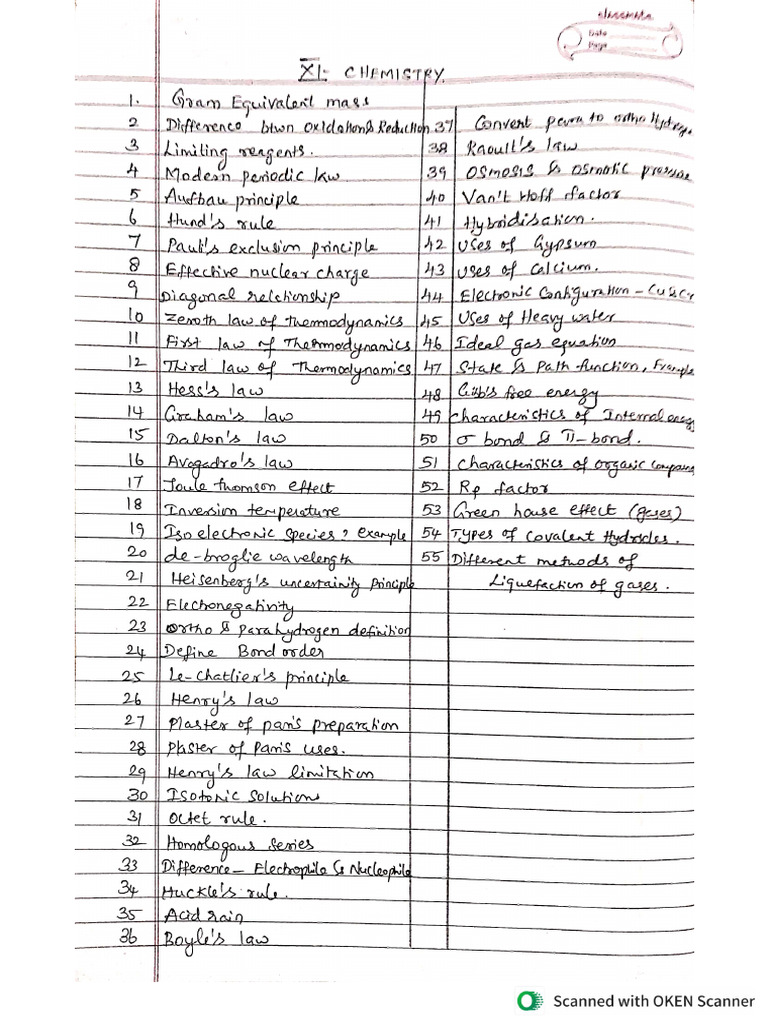 classmate
Date
Page
XI- CHEMISTRY
1. Gram Equivalent mass
2 Difference btwn Oxidation & Reduction
3 Limiting reagents.
4 Modern periodic law
5 Aufbau principle
6 Hund's rule
7 Pauli's exclusion principle
8 Effective nuclear charge
9 Diagonal relationship
10 Zeroth law of thermodynamics
11 First law of Thermodynamics
12 Third law of Thermodynamics
13 Hess's law
14 Graham's law
15 Dalton's law
16 Avogadro's law
17 Joule thomson effect
18 Inversion temperature
19 Iso electronic species? example
20 de-broglie wavelength
21 Heisenberg's uncertainity Principle
22 Electronegativity
23 Ortho & parahydrogen definition
24 Define Bond order
25 Le-Chatlier's principle
26 Henry's law
27 Plaster of paris preparation
28 Plaster of Paris uses.
29 Henry's law limitation
30 Isotonic solutions
31 Octet rule.
32 Homologous series
33 Difference - Electrophile & Nucleophile
34 Huckle's rule.
35 Acid rain
36 Boyle's law
37 Convert para to ortho Hydroge
38 Raoult's law
39 Osmosis & Osmotic pressure
40 Van't Hoff factor
41 Hybridisation.
42 Uses of Gypsum
43 Uses of Calcium.
44 Electronic Configuration - Cu & Cr
45 Uses of Heavy water
46 Ideal gas equation
47 State & Path function, Example
48 Gibb's free energy
49 Characteristics of Internal energy
50 σ bond & π-bond.
51 Characteristics of organic compoun
52 Rp factor
53 Green house effect (gases)
54 Types of Covalent Hydrides.
55 Different methods of
Liquefaction of gases.
Scanned with OKEN Scanner